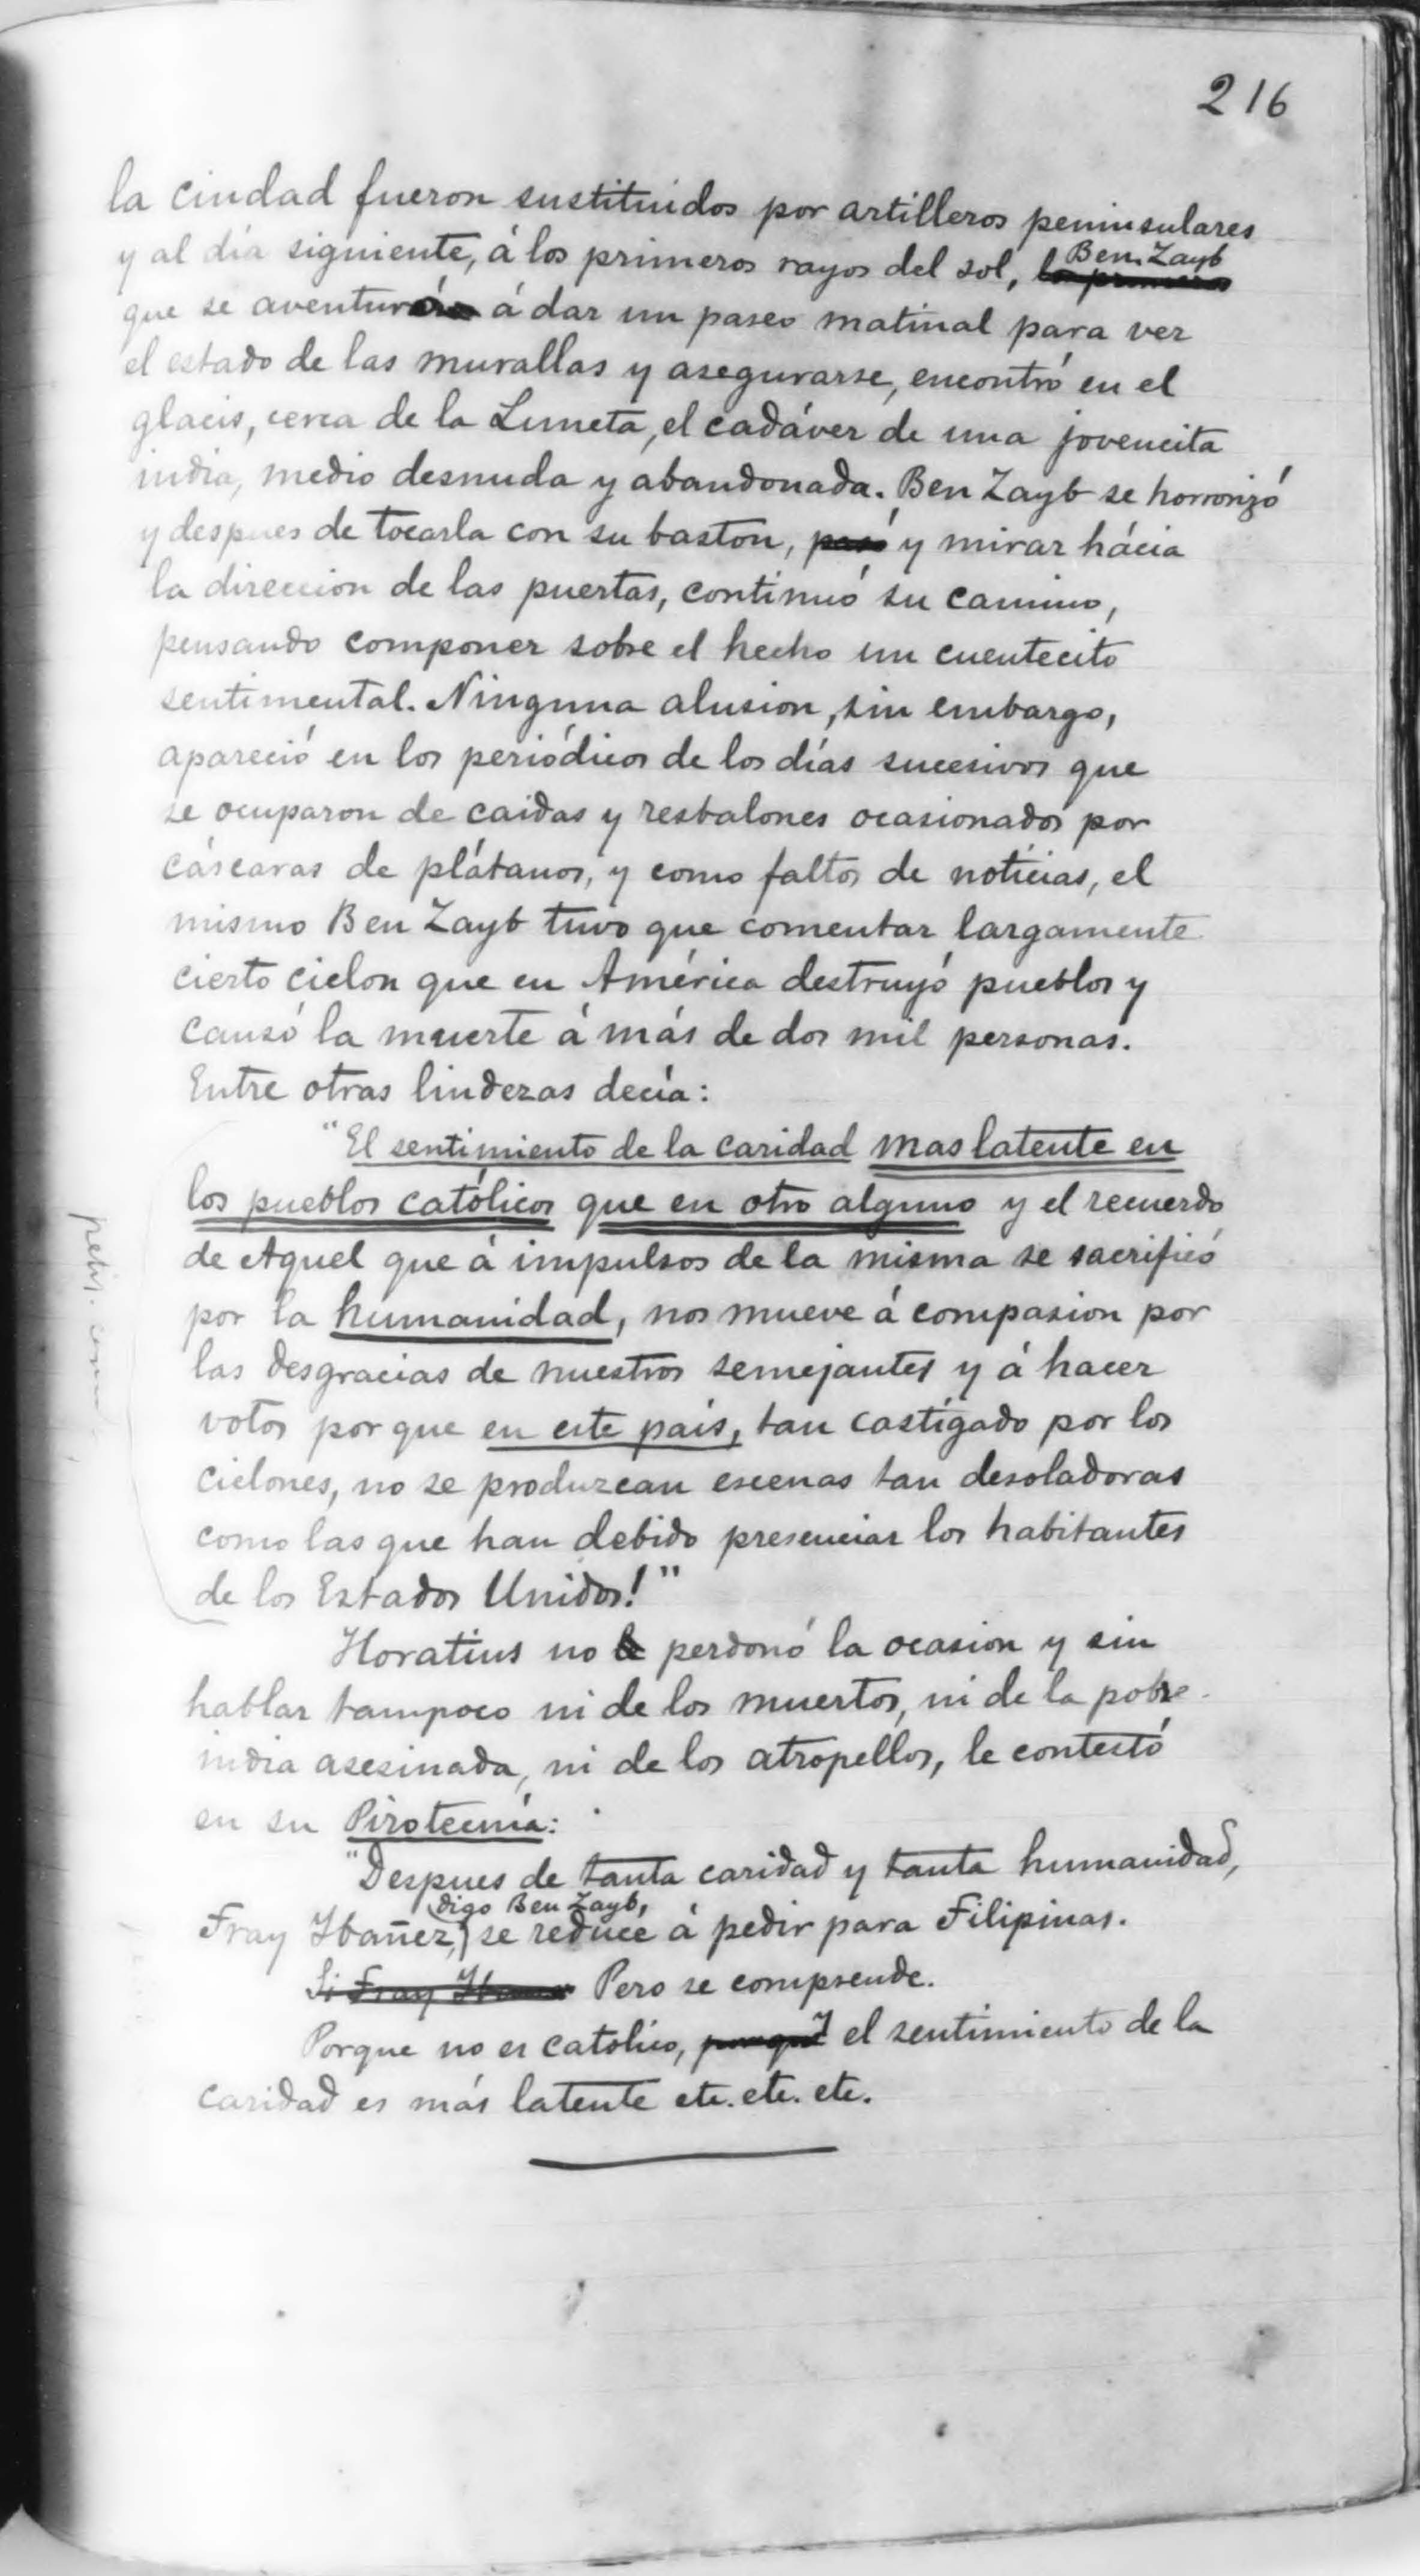 216
la ciudad fueron sustituidos por artilleros peninsulares
y al día siguiente, á los primeros rayos del sol, Ben Zayb
que se aventuró á dar un paseo matinal para ver
el estado de las murallas y asegurarse, encontró en el
glacis, cerca de la Luneta, el cadáver de una jovencita
india, medio desnuda y abandonada. Ben Zayb se horrorizó
y despues de tocarla con su baston, y mirar hácia
la direccion de las puertas, continuó su camino,
pensando componer sobre el hecho un cuentecito
sentimental. Ninguna alusion, sin embargo,
apareció en los periódicos de los días sucesivos que
se ocuparon de caidas y resbalones ocasionados por
cáscaras de plátanos, y como faltos de noticias, el
mismo Ben Zayb tuvo que comentar largamente
cierto ciclon que en América destruyó pueblos y
causó la muerte á más de dos mil personas.
Entre otras lindezas decía:
"El sentimiento de la caridad mas latente en
los pueblos católicos que en otro alguno y el recuerdo
de Aquel que á impulsos de la misma se sacrificó
por la humanidad, nos mueve á compasion por
las desgracias de nuestros semejantes y á hacer
votos por que en este país, tan castigado por los
ciclones, no se produzcan escenas tan desoladoras
como las que han debido presenciar los habitantes
de los Estados Unidos!"
Horatius no perdonó la ocasion y sin
hablar tampoco ni de los muertos, ni de la pobre
india asesinada, ni de los atropellos, le contestó
en su Pirotecnia:
"Despues de tanta caridad y tanta humanidad,
Fray Ibañez, digo Ben Zayb, se reduce á pedir para Filipinas.
Si Fray Pero se comprende.
Porque no es católico, y el sentimiento de la
caridad es más latente etc. etc. etc.